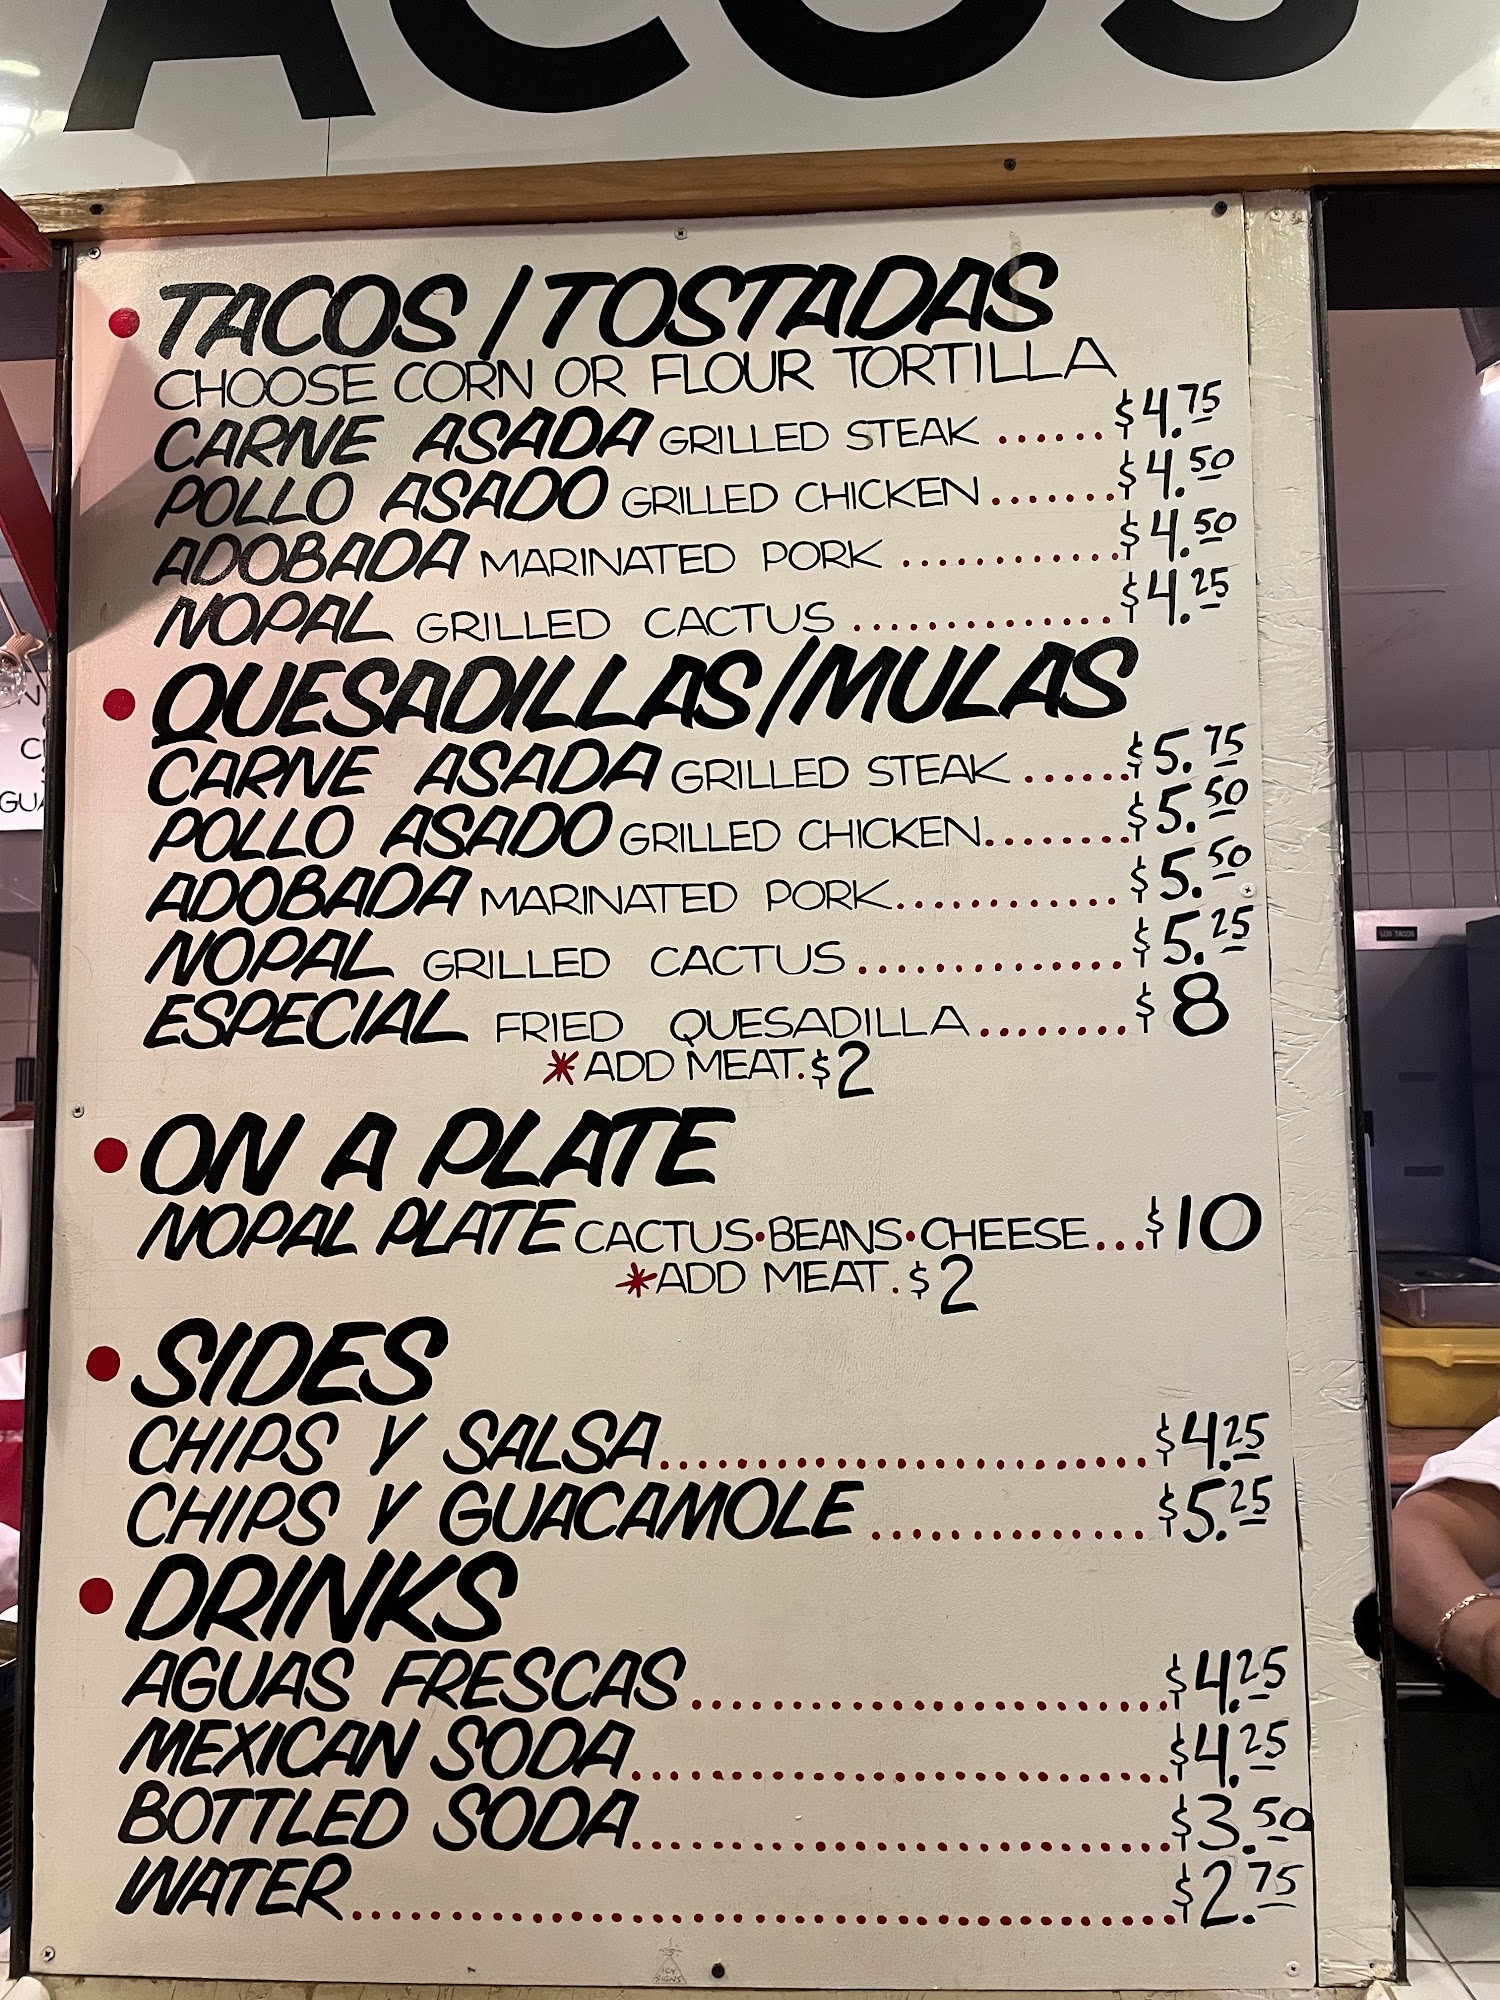 ACOS
• TACOS / TOSTADAS
CHOOSE CORN OR FLOUR TORTILLA
CARNE ASADA GRILLED STEAK ...... $4.75
POLLO ASADO GRILLED CHICKEN ....... $4.50
ADOBADA MARINATED PORK ............ $4.50
NOPAL GRILLED CACTUS ............. $4.25
• QUESADILLAS/MULAS
CARNE ASADA GRILLED STEAK ...... $5.75
POLLO ASADO GRILLED CHICKEN ....... $5.50
ADOBADA MARINATED PORK ............ $5.50
NOPAL GRILLED CACTUS ............. $5.25
ESPECIAL FRIED QUESADILLA ........ $8
*ADD MEAT. $2
• ON A PLATE
NOPAL PLATE CACTUS•BEANS•CHEESE... $10
*ADD MEAT. $2
• SIDES
CHIPS Y SALSA ........................ $4.25
CHIPS Y GUACAMOLE .............. $5.25
• DRINKS
AGUAS FRESCAS ........................ $4.25
MEXICAN SODA ........................ $4.25
BOTTLED SODA ........................ $3.50
WATER ........................ $2.75
ICY
SIGNS
LOS TACOS